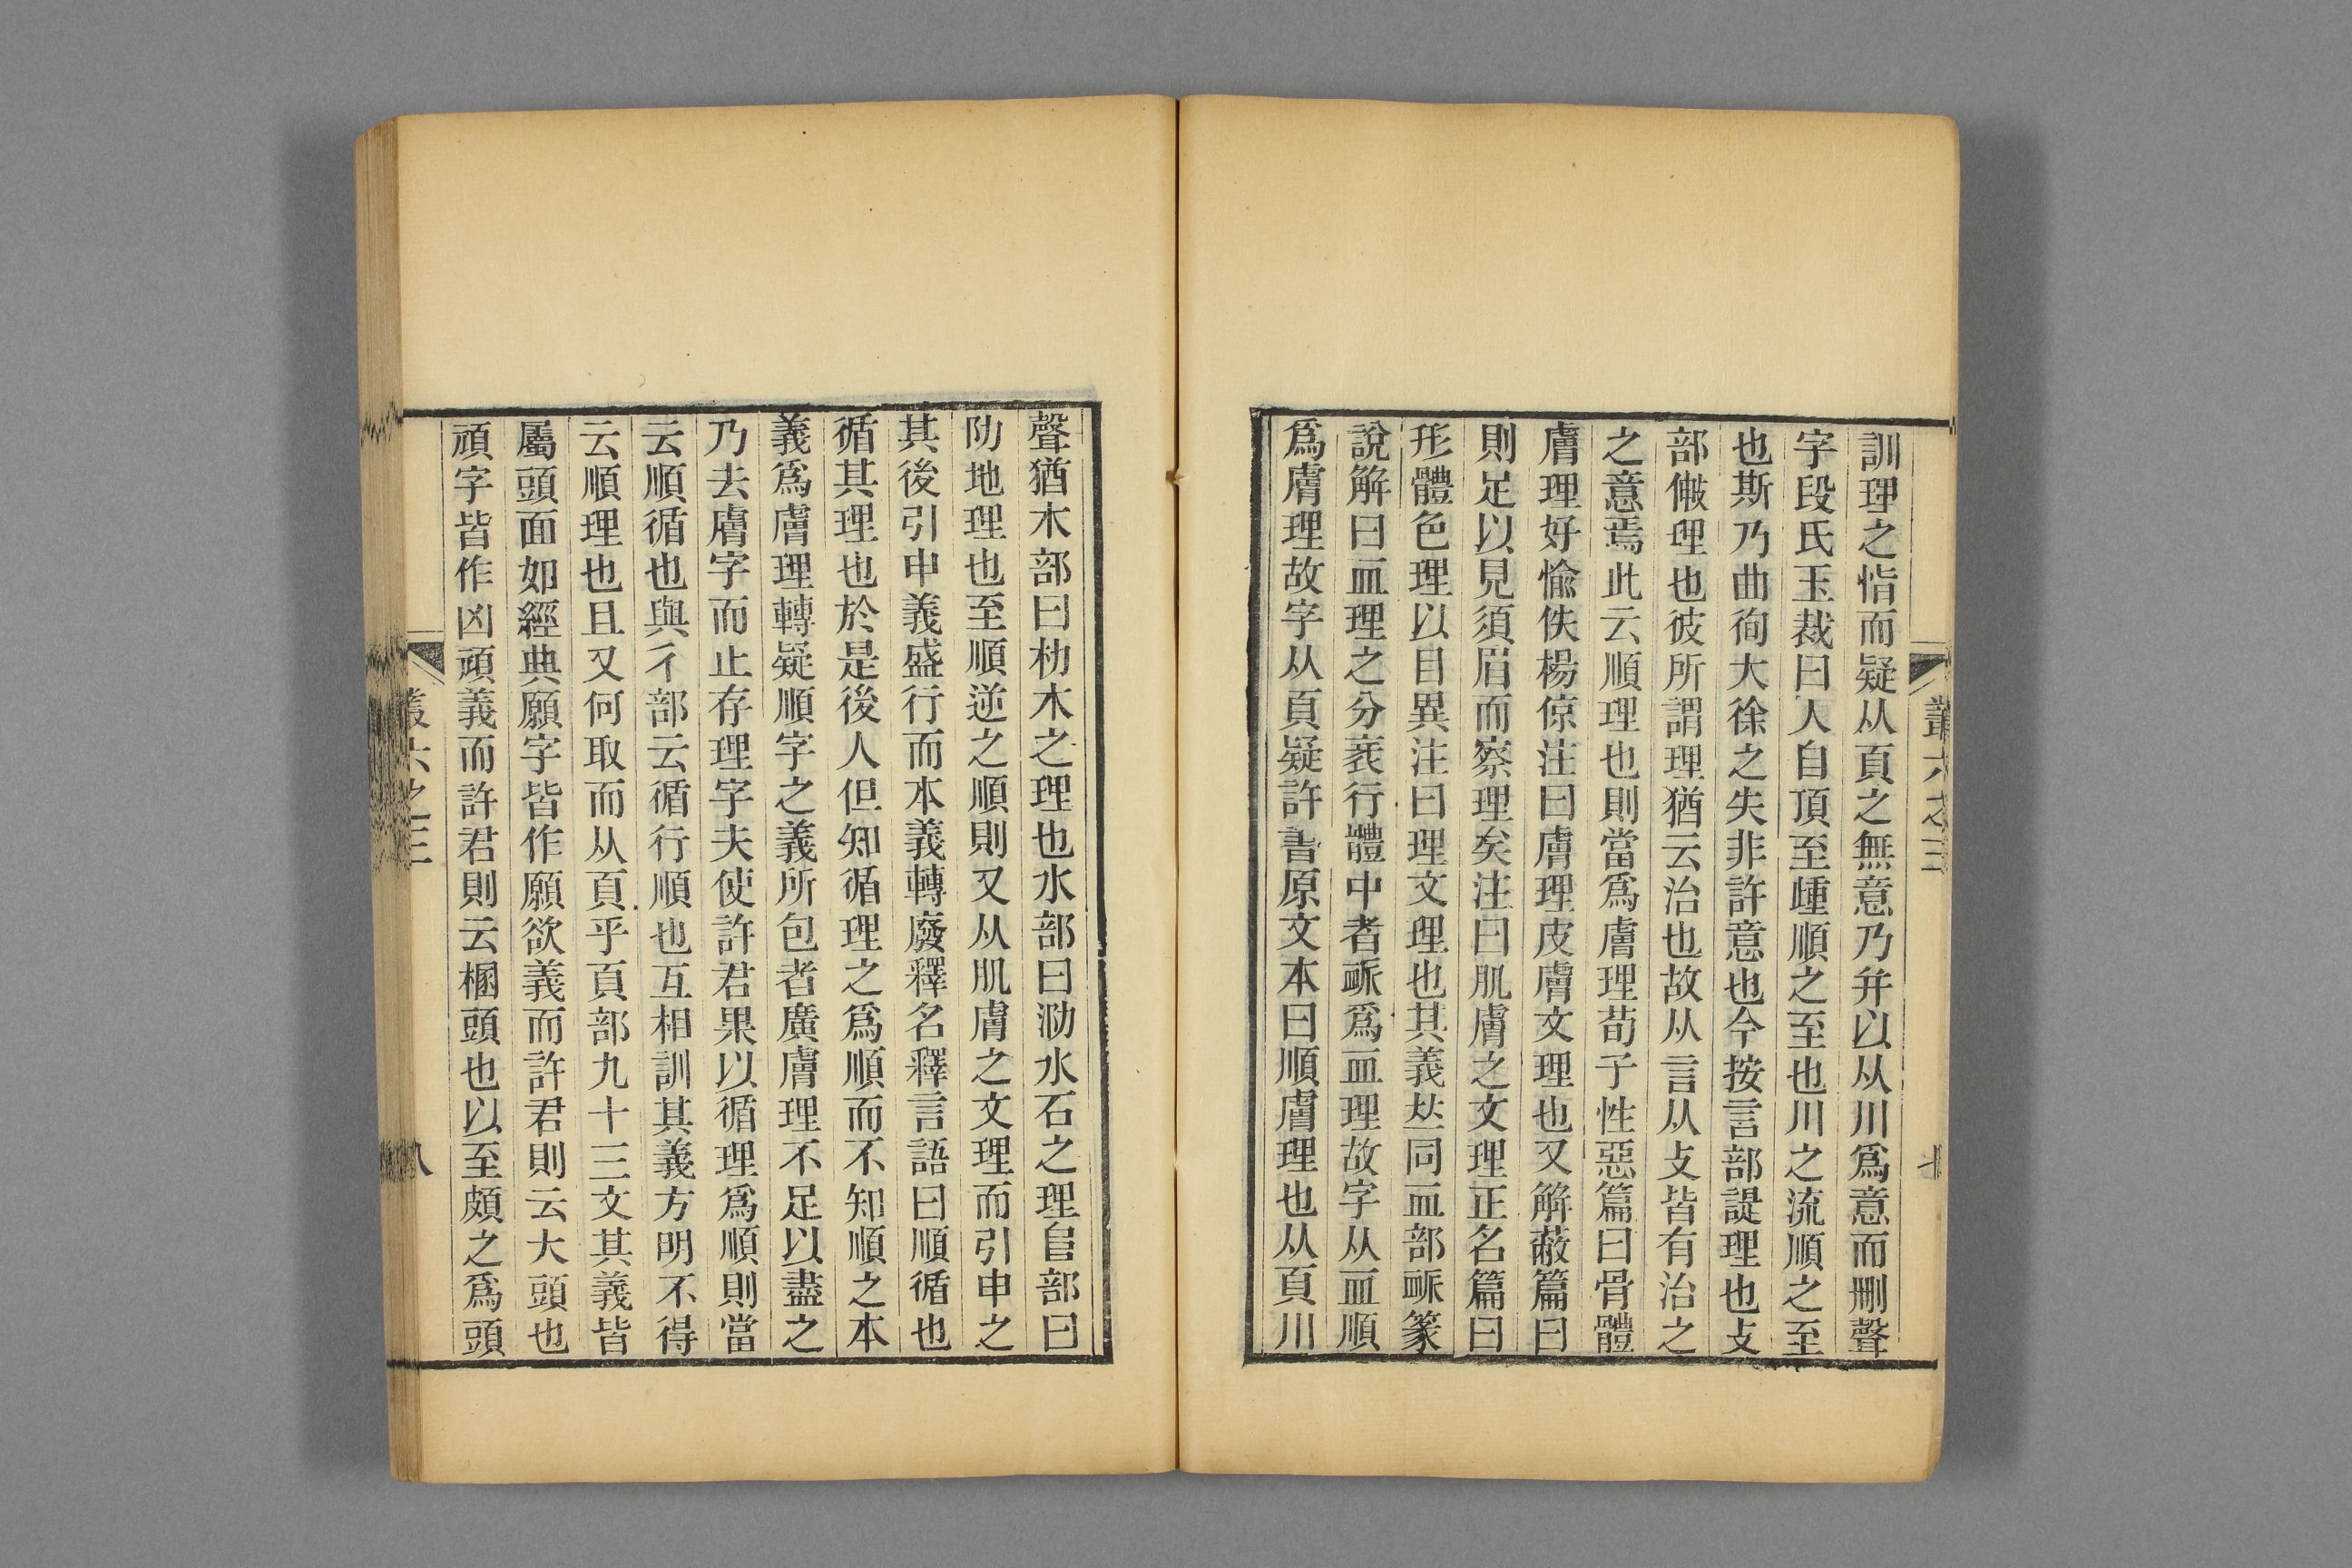 訓理之恉而疑从頁之無意乃幷以从川爲意而刪聲
字段氏玉裁曰人自頂至歱順之至也川之流順之至
也斯乃曲徇大徐之失非許意也今按言部諟理也攴
部㪣理也彼所謂理猶云治也故从言从攴皆有治之
之意焉此云順理也則當爲膚理荀子性惡篇曰骨體
膚理好愉佚楊倞注曰膚理皮膚文理也又解蔽篇曰
則足以見須眉而察理矣注曰肌膚之文理正名篇曰
形體色理以目異注曰理文理也其義𠀤同血部𧖴篆
說解曰血理之分衺行體中者𧖴爲血理故字从血順
爲膚理故字从頁疑許書原文本曰順膚理也从頁川
聲猶木部曰朸木之理也水部曰泐水石之理𨸏部曰
阞地理也至順逆之順則又从肌膚之文理而引申之
其後引申義盛行而本義轉廢釋名釋言語曰順循也
循其理也於是後人但知循理之爲順而不知順之本
義爲膚理轉疑順字之義所包者廣膚理不足以盡之
乃去膚字而止存理字夫使許君果以循理爲順則當
云順循也與彳部云循行順也互相訓其義方明不得
云順理也且又何取而从頁乎頁部九十三文其義皆
屬頭面如經典願字皆作願欲義而許君則云大頭也
頑字皆作凶頑義而許君則云梱頭也以至頗之爲頭
叢六之三
八